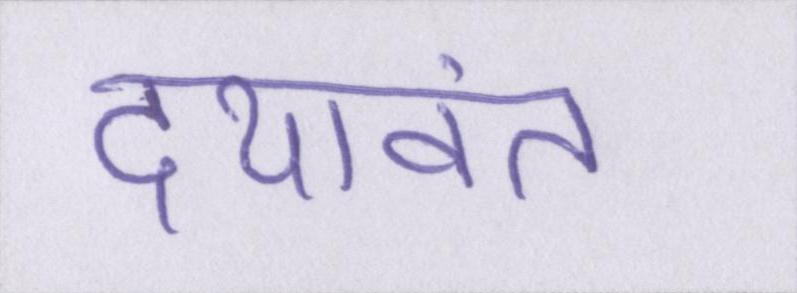 दयावंत